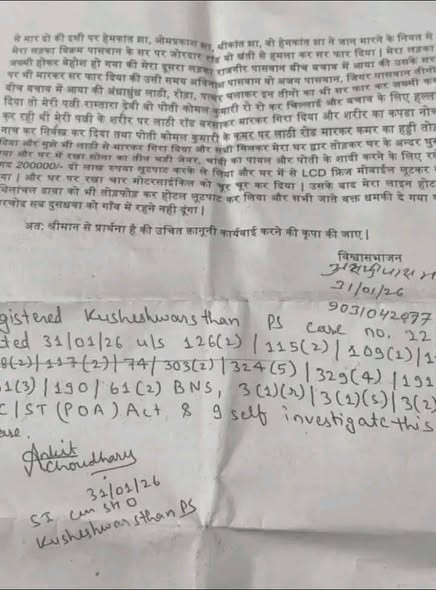 से मार दो की इसी पर हेमकांत झा, ओमप्रकाश झा, श्रीकांत झा, वो हेमकांत झा ने जान मारने के नियत से
मेरा लड़का विक्रम पासवान के सर पर जोरदार रॉड वो खंती से हमला कर सर फार दिया। मेरा लड़का
जख्मी होकर बेहोश हो गया की मेरा दूसरा लड़का राजगीर पासवान बीच बचाव में आया की उसके सर
पर भी मारकर सर फार दिया की उसी समय अविनाश पासवान वो अजय पासवान, जिगर पासवान तीनों
बीच बचाव में आया की अंधाधुंध लाठी, रोड़ा, पत्थर चलाकर इन तीनों का भी सर फार कर जख्मी कर
दिया तो मेरी पत्नी रामतारा देवी वो पोती कोमल कुमारी रो रो कर चिल्लाई और बचाव के लिए हल्ला
कर रही थी मेरी पत्नी के शरीर पर लाठी रॉड बरसाकर मारकर गिरा दिया और शरीर का कपड़ा नोच
नाच कर निर्वस्त्र कर दिया तथा पोती कोमल कुमारी के कमर पर लाठी रॉड मारकर कमर का हड्डी तोड़
दिया और मुझे भी लाठी से मारकर गिरा दिया और सभी मिलकर मेरा घर द्वार तोड़कर घर के अन्दर घुस
गया और घर में रखा सोना का तीन भरी जेवर, चांदी का पायल और पोती के शादी करने के लिए रखे
2000000/- दो लाख रुपया लूटपाट करके ले लिया और घर में से LCD फ्रिज मोबाईल लूटकर
गया। और घर पर रखा चार मोटरसाईकिल को चूर चूर कर दिया। उसके बाद मेरा लाईन होटल
ढाबा को भी तोड़फोड़ कर होटल लूटपाट कर लिया और सभी जाते वक्त धमकी दे गया
सब दुसधवा को गाँव में रहने नही दूंगा।
अतः श्रीमान से प्रार्थना है की उचित क़ानूनी कार्यवाई करने की कृपा की जाए।
विश्वासभाजन
31/01/26
9031042977
Kusheshwarsthan PS case no. 22
31/01/26 u/s 126(2) | 115(2) | 109(1) |
117(2) | 74 | 303(2) | 324(5) | 329(4) | 191
190 | 61(2) BNS, 3(1)(r) | 3(1)(s) | 3(2)
ST (POA) Act, & I self investigate this
Ankit
Choudhary
31/01/26
SI cum SHO
Kusheshwarsthan PS